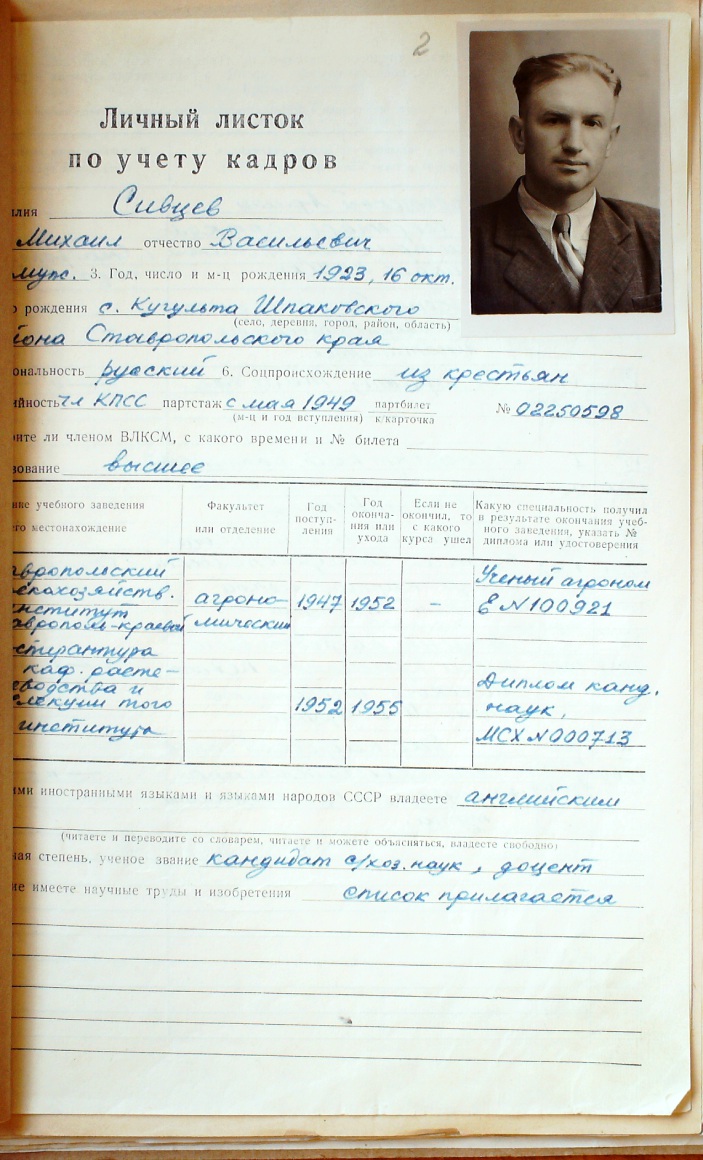 2
Личный листок
по учету кадров
илия Сивцев
Михаил отчество Васильевич
муж. 3. Год, число и м-ц рождения 1923, 16 окт.
о рождения с. Кугульта Шпаковского
(село, деревня, город, район, область)
йона Ставропольского края
ональность русский 6. Соцпроисхождение из крестьян
ийность чл КПСС партстаж с мая 1949 партбилет к/карточка № 02250598
(м-ц и год вступления)
ите ли членом ВЛКСМ, с какого времени и № билета
зование высшее
ние учебного заведения
его местонахождение
Факультет
или отделение
Год
поступ-
ления
Год
оконча-
ния или
ухода
Если не
окончил, то
с какого
курса ушел
Какую специальность получил
в результате окончания учеб-
ного заведения, указать №
диплома или удостоверения
авропольский
сельхозяйств.
институт
агроно-
мический
1947 1952 -
Ученый агроном
Е № 100921
спирантура
каф. расте-
еводства и
селекции того
института
1952 1955
Диплом канд.
наук,
МСХ № 000713
ими иностранными языками и языками народов СССР владеете английским
(читаете и переводите со словарем, читаете и можете объясняться, владеете свободно)
ная степень, ученое звание кандидат с/хоз. наук, доцент
ие имеете научные труды и изобретения список прилагается